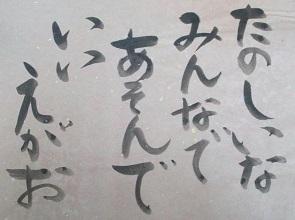 たのしいな
みんなで
あそんで
いい
えがお